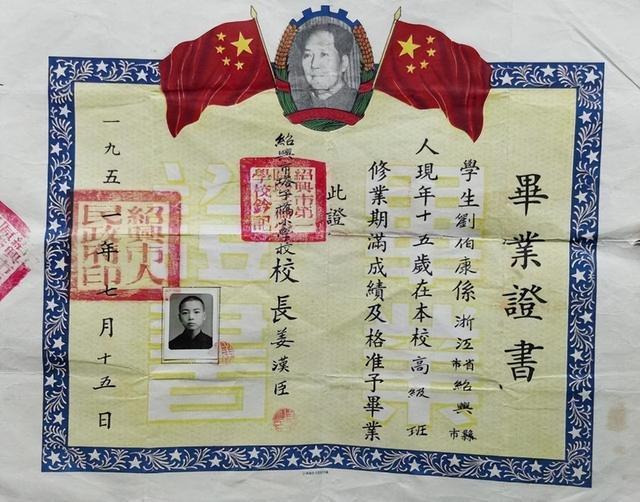 畢業證書
學生劉伯康係浙江省市紹興縣市
人現年十五歲在本校高級班
修業期滿成績及格准予畢業
此證
紹興市小學校校長姜漢臣
一九五一年七月十五日
紹興市第一
學校鈐記
紹興市人
民政府印
畢業
證書